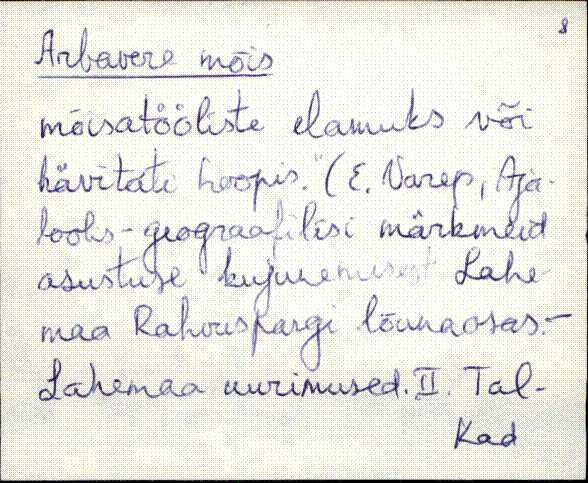 8
Arbavere mõis
mõisatööliste elamuks või
hävitati hoopis." (E. Varep, Aja-
loolis-geograafilisi märkmeid
asustuse kujunemisest Lahe-
maa Rahvuspargi lõunaosas.-
Lahemaa uurimused. II. Tal-
Kad